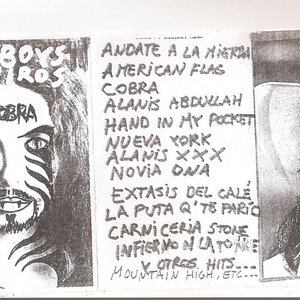 BOYS
ROS
OBRA
ANDATE A LA MIERDA
AMERICAN FLAG
COBRA
ALANIS ABDULLAH
HAND IN MY POCKET
NUEVA YORK
ALANIS XXX
NOVIA ONA
EXTASIS DEL CALE
LA PUTA Q' TE PARIO
CARNICERIA STONE
INFIERNO N LA
Y OTROS HITS...
MOUNTAIN HIGH, ETC...